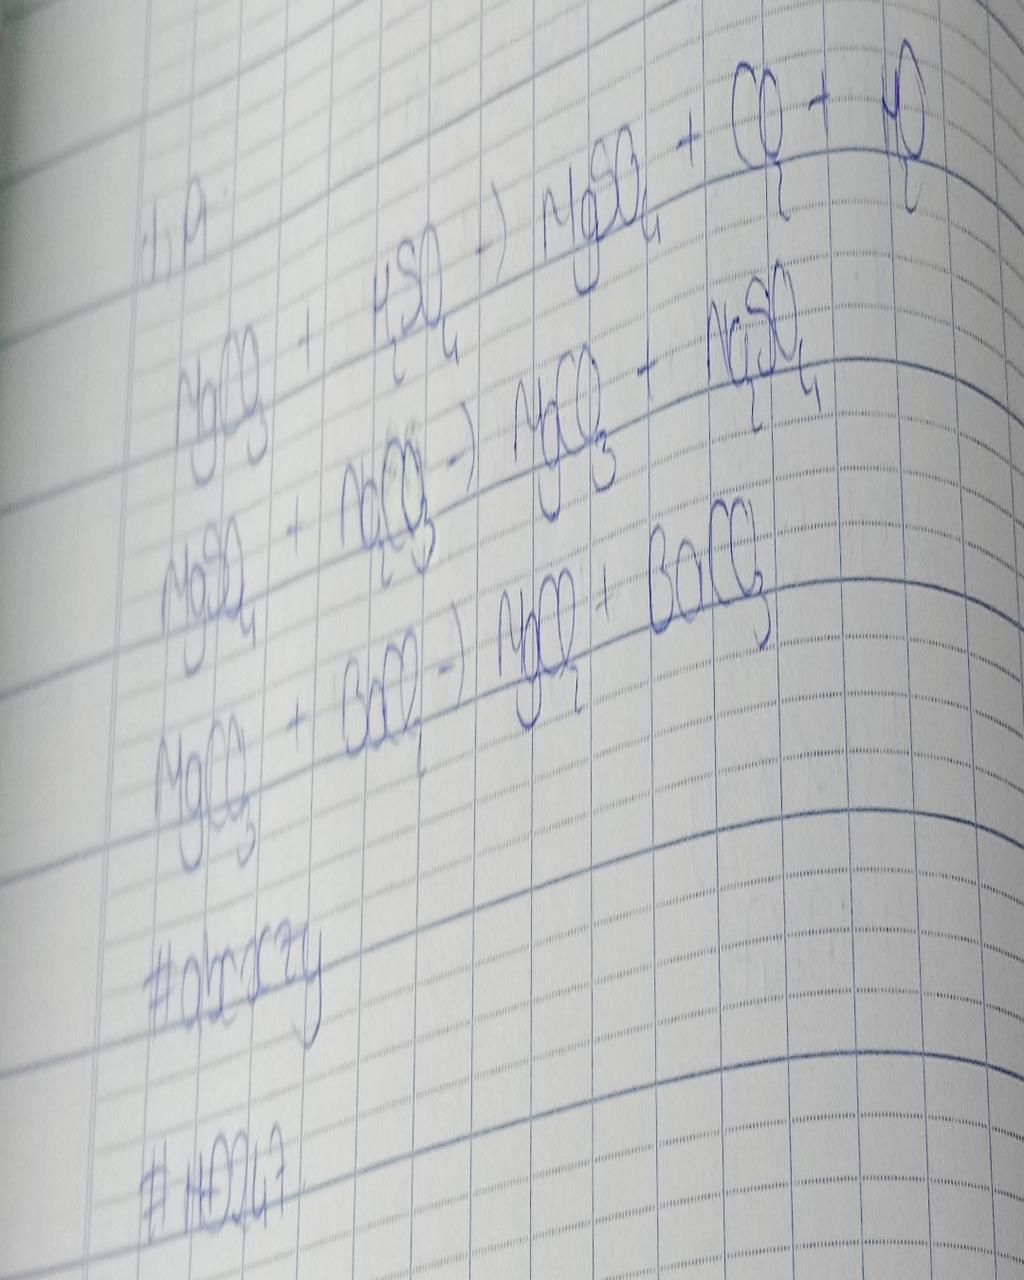 1. A
MgCO₃ + H₂SO₄ → MgSO₄ + CO₂ + H₂O
MgSO₄ + Na₂CO₃ → MgCO₃ + Na₂SO₄
MgCO₃ + BaCl₂ → MgCl₂ + BaCO₃